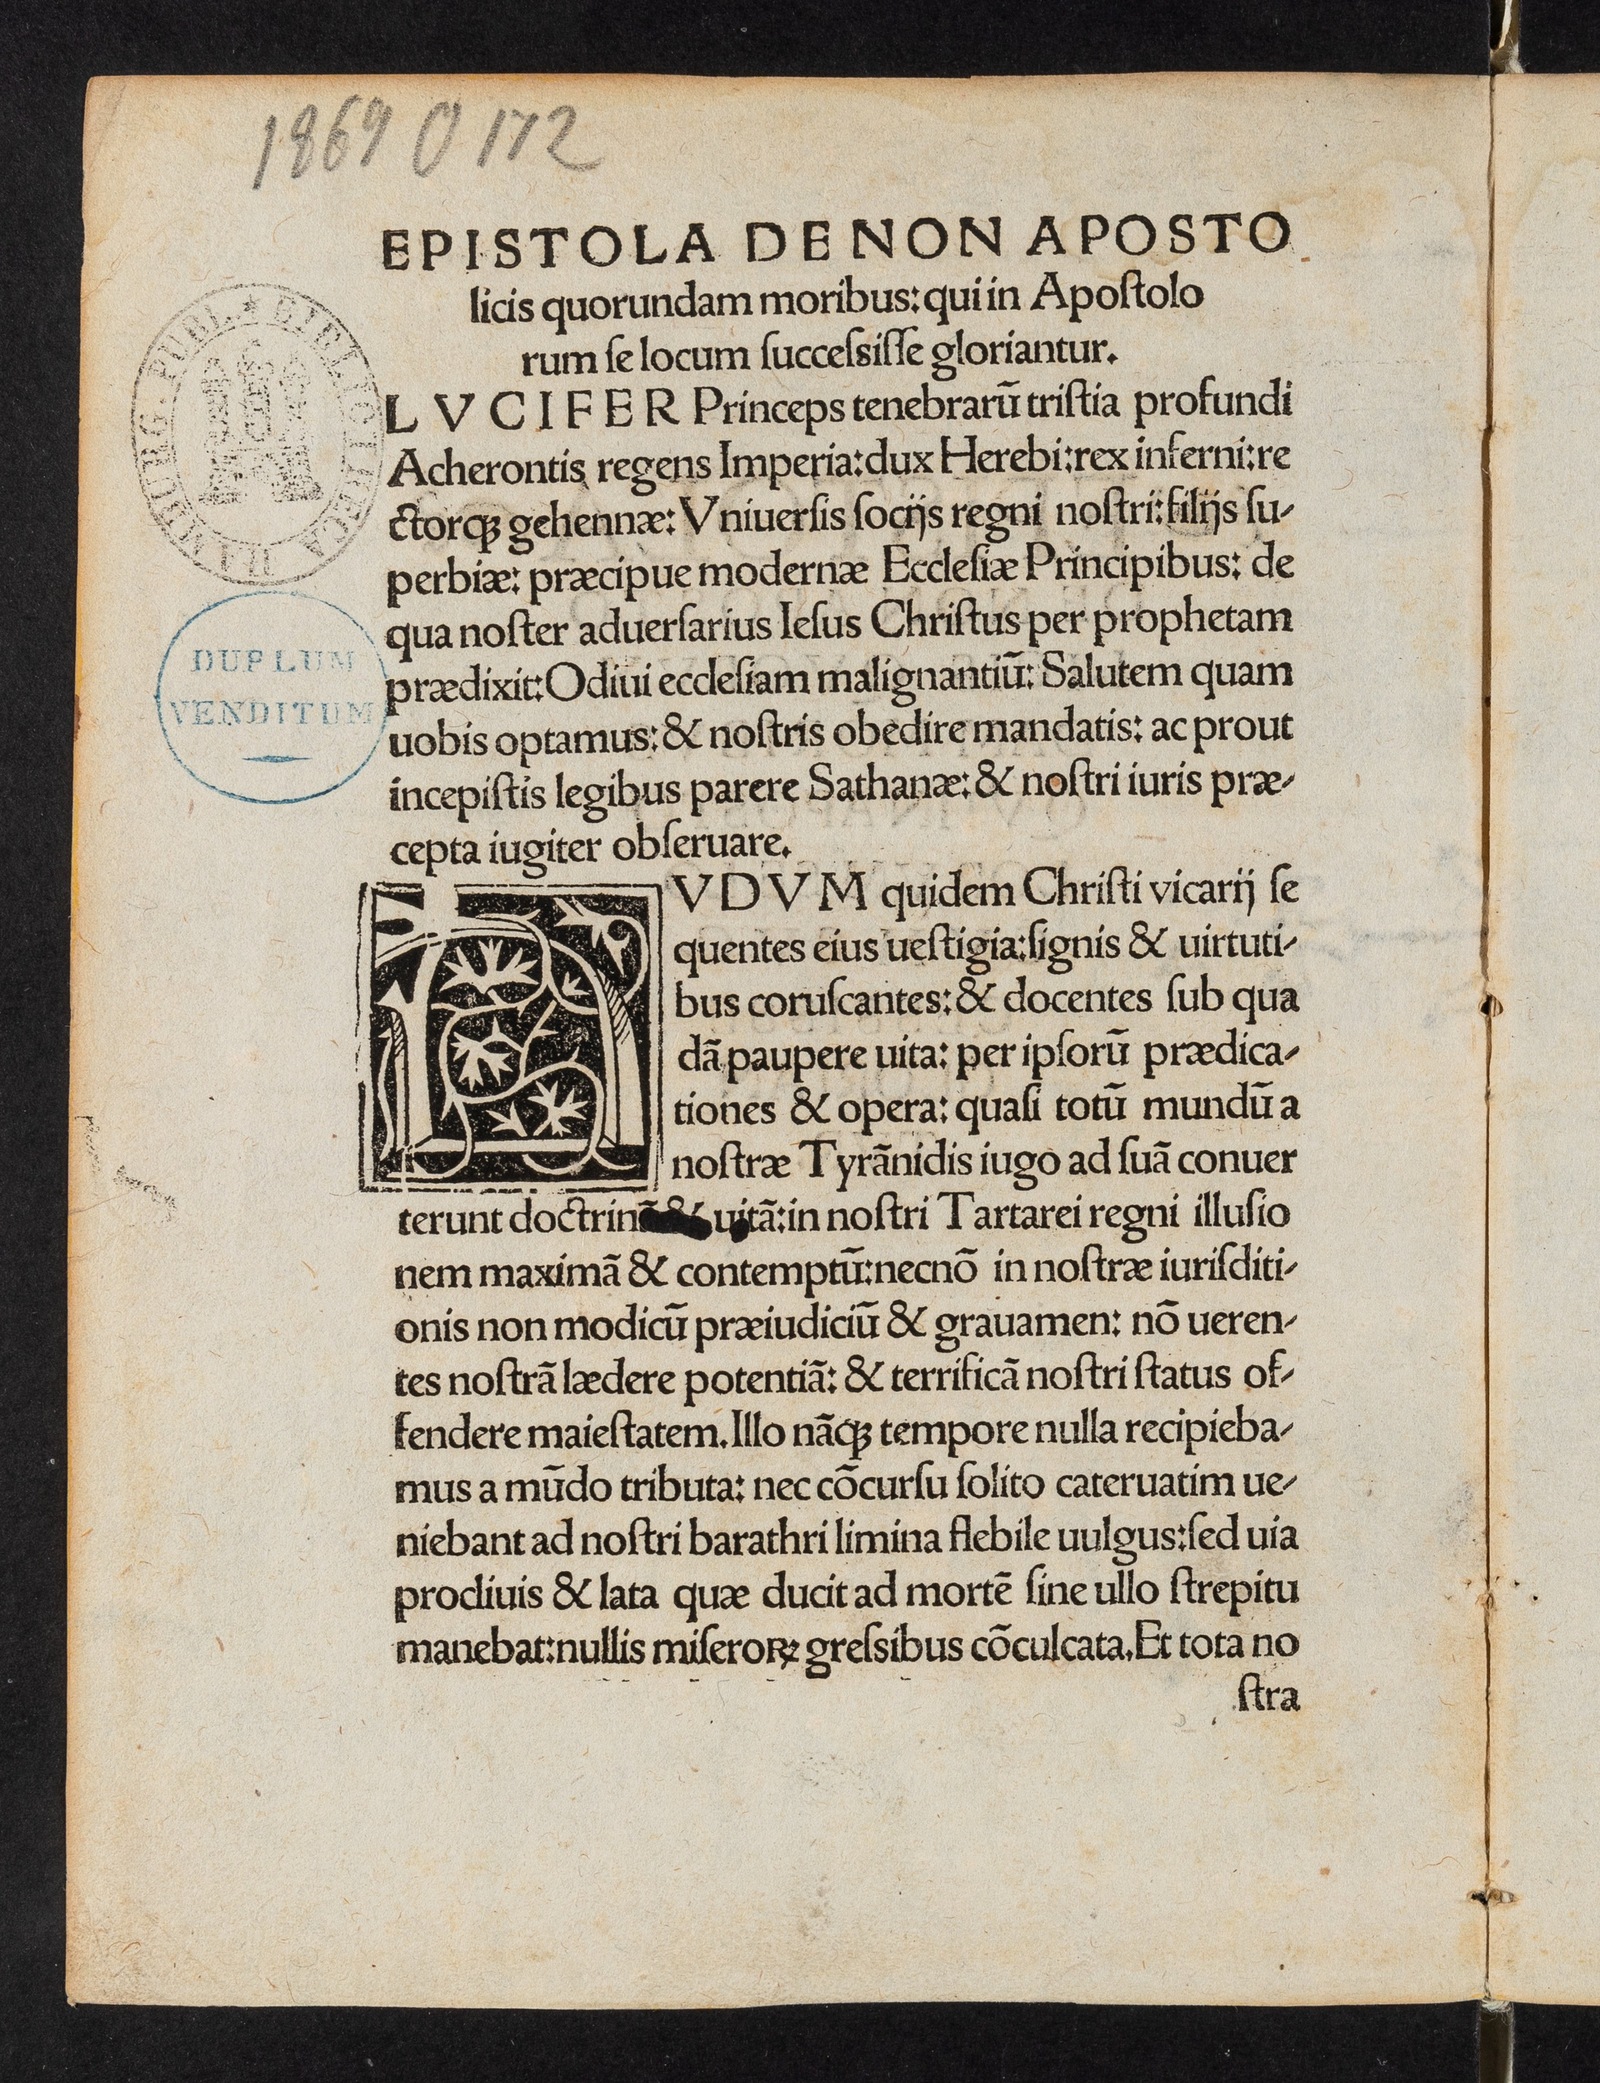 1869 O 172
EPISTOLA DE NON APOSTO
licis quorundam moribus: qui in Apoſtolo
rum ſe locum ſucceſsiſſe gloriantur.
LVCIFER Princeps tenebrarū triſtia profundi
Acherontis regens Imperia: dux Herebi: rex inferni: re
ctorqꝫ gehennæ: Vniuerſis ſocijs regni noſtri: filijs ſu-
perbiæ: præcipue modernæ Eccleſiæ Principibus: de
qua noſter aduerſarius Ieſus Chriſtus per prophetam
prædixit: Odiui eccleſiam malignantiū: Salutem quam
uobis optamus: & noſtris obedire mandatis: ac prout
incepiſtis legibus parere Sathanæ: & noſtri iuris præ-
cepta iugiter obſeruare.
VDVM quidem Chriſti vicarij ſe
quentes eius ueſtigia: ſignis & uirtuti-
bus coruſcantes: & docentes ſub qua
dā paupere uita: per ipſorū prædica-
tiones & opera: quaſi totū mundū a
noſtræ Tyrānidis iugo ad ſuā conuer
terunt doctrinā & uitā: in noſtri Tartarei regni illuſio
nem maximā & contemptū: necnō in noſtræ iuriſditi-
onis non modicū præiudiciū & grauamen: nō ueren-
tes noſtrā lædere potentiā: & terrificā noſtri ſtatus of-
fendere maieſtatem. Illo nāqꝫ tempore nulla recipieba-
mus a mūdo tributa: nec cōcurſu ſolito cateruatim ue-
niebant ad noſtri barathri limina flebile uulgus: ſed uia
procliuis & lata quæ ducit ad mortē ſine ullo ſtrepitu
manebat: nullis miſeroꝝ greſsibus cōculcata. Et tota no
ſtra
BIBLIOTHECA HAMBURG. PUBL.
DUPLUM
VENDITUM